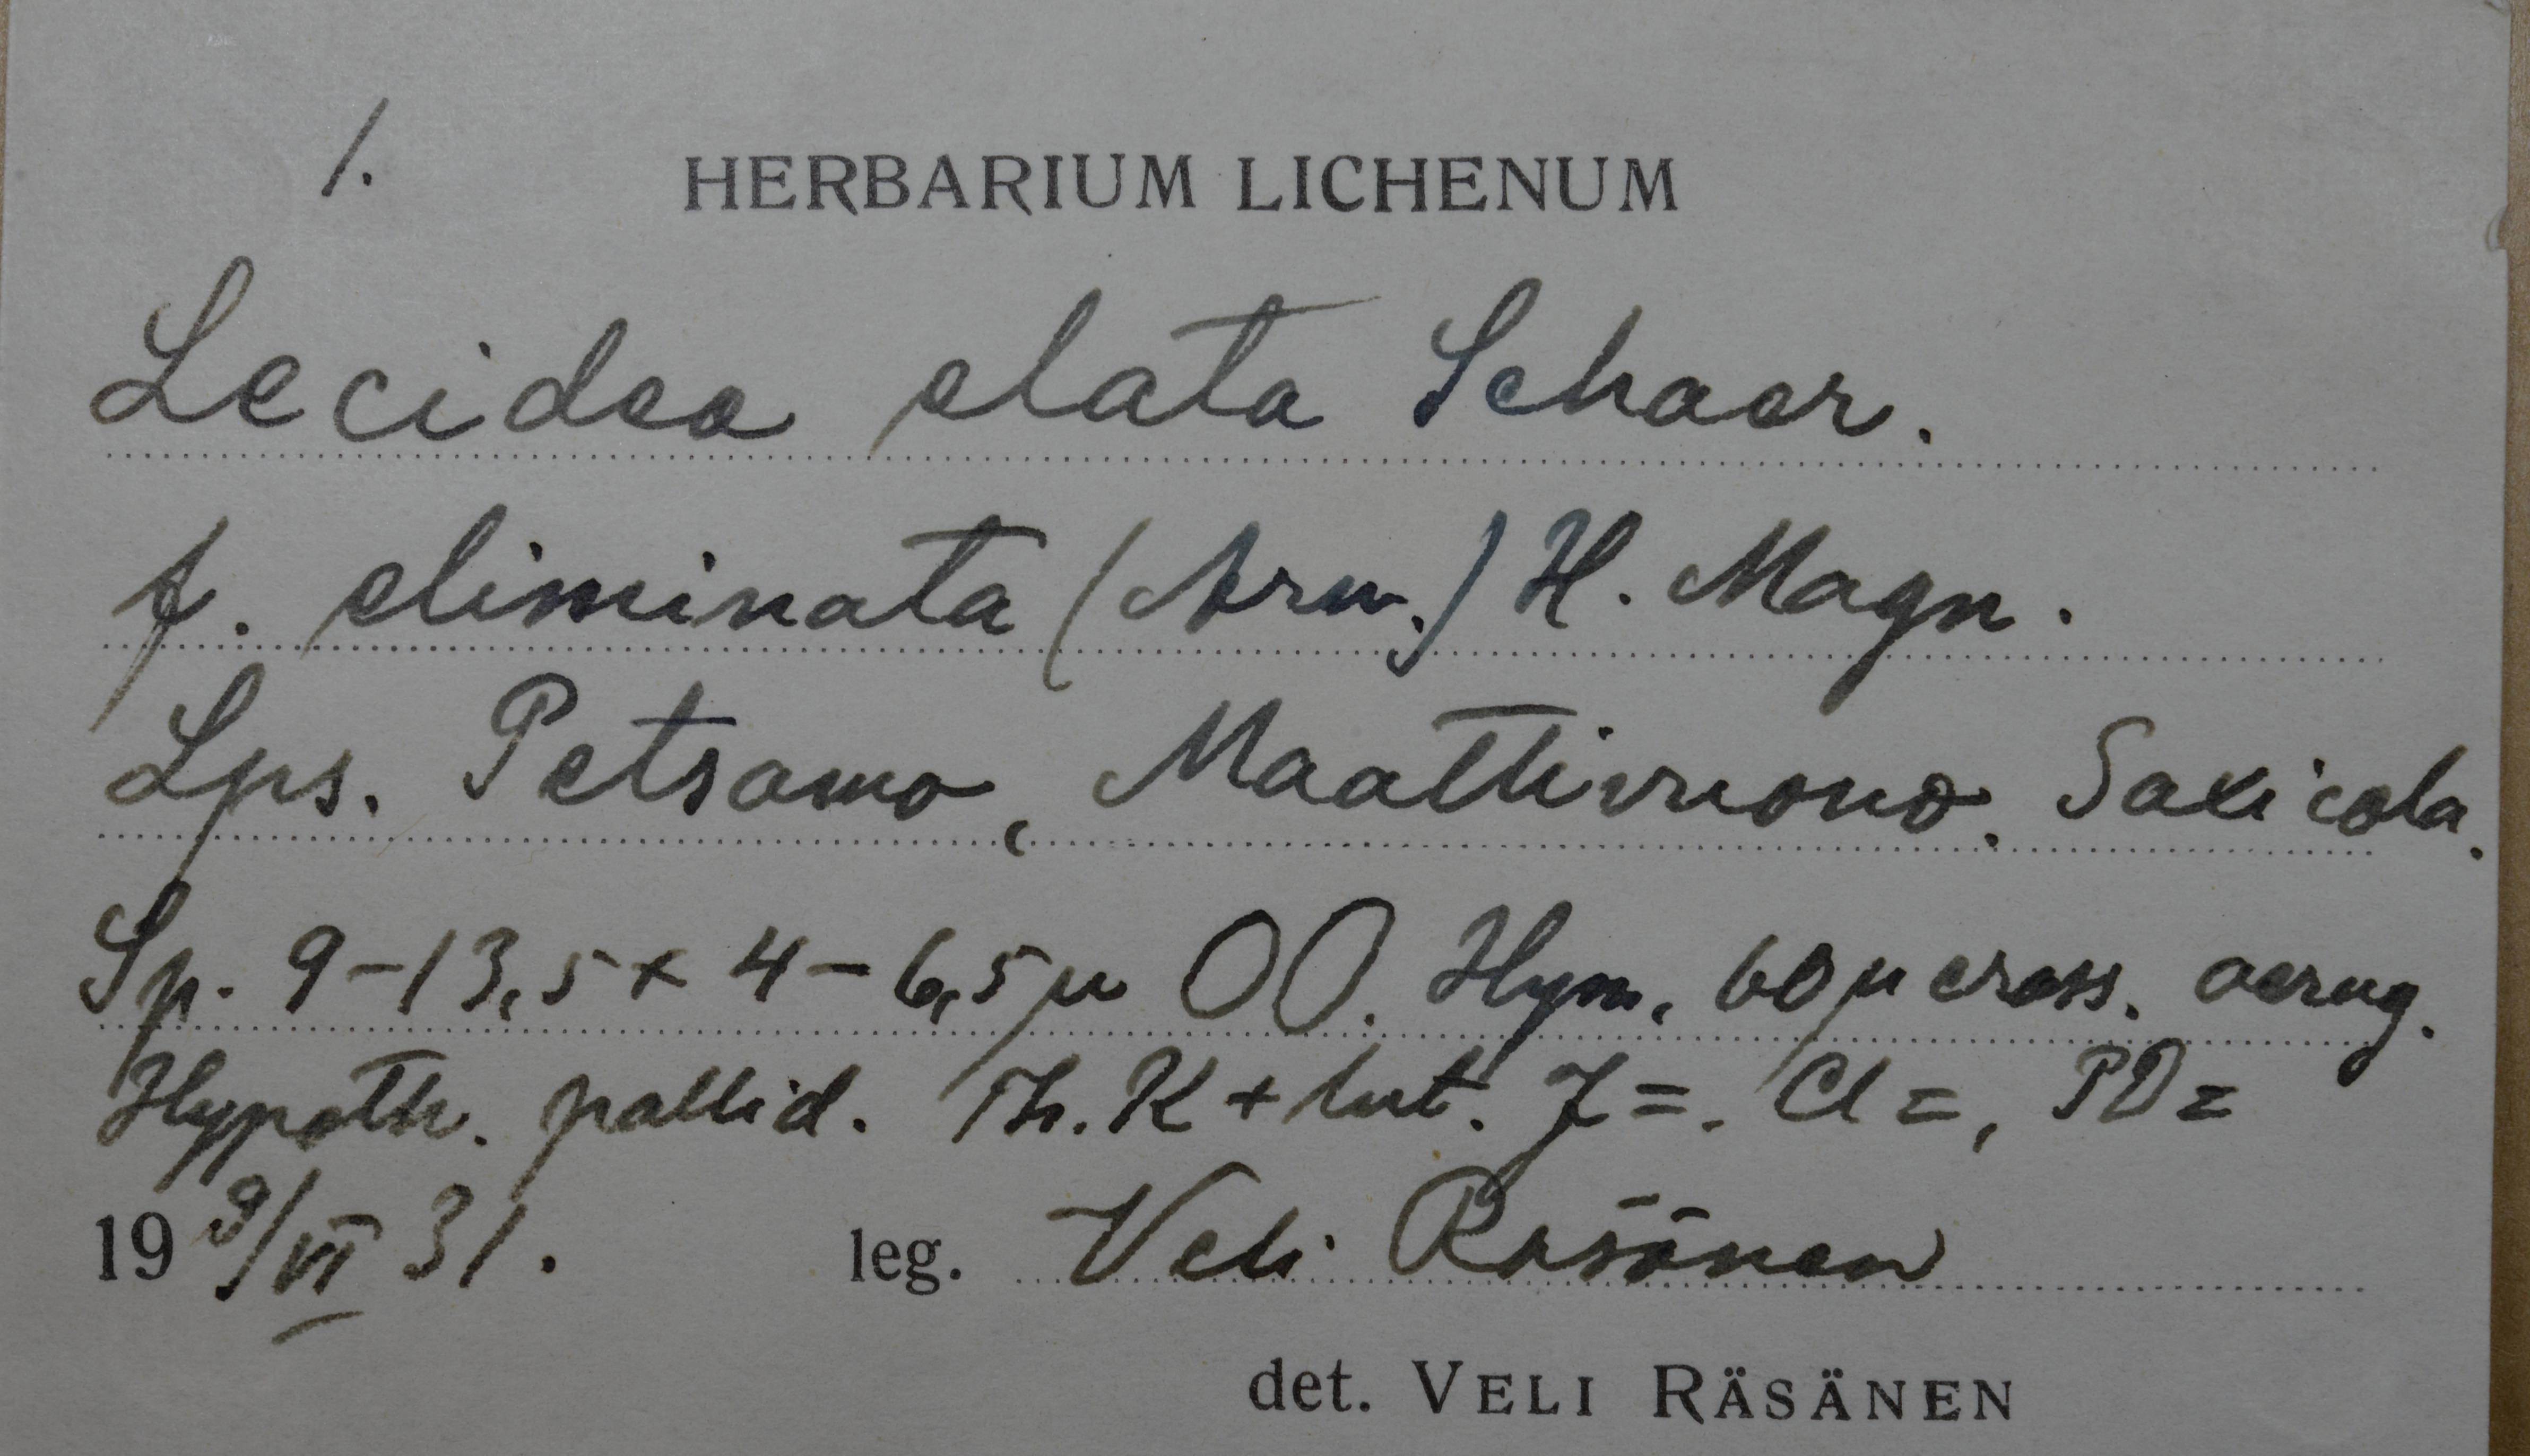 1.
HERBARIUM LICHENUM
Lecidea elata Schaer.
f. eliminata (Arn.) H. Magn.
Lps. Petsamo, Maattivuono. Saxicola.
Sp. 9-13,5 x 4-6,5 µ OO. Hym. 60 µ crass. aerug.
Hypoth. pallid. Th. K + lut. J =. Cl =, PD =
19 9/VI 31. leg. Veli Räsänen
det. VELI RÄSÄNEN